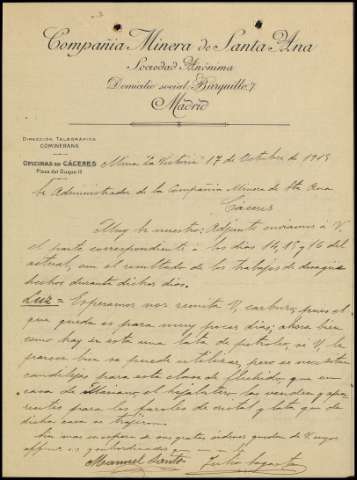 Compañía Minera de Santa Ana
Sociedad Anónima
Domicilio social: Barquillo, 7
Madrid
DIRECCIÓN TELEGRÁFICA
COMINERANA
OFICINAS DE CÁCERES
Plaza del Duque 11
Mina La Victoria 17 de Octubre de 191
Sr. Administrador de la Compañía Minera de Sta Ana
Cáceres
Muy Sr. nuestro: Adjunto enviamos a V.
el parte correspondiente a los días 14, 15 y 16 del
actual, con el resultado de los trabajos de desagüe
hechos durante dichos días.
Luz = Esperamos nos remita V. carburo, pues el
que queda es para muy pocos días; ahora bien
como hay en esta una lata de petroleo, si V. le
parece bien se puede utilizar, pero se necesitan
candilejas para esta clase de fluido, que en
casa de Mariano, el hojalatero las venden y apa-
rentes para los faroles de cristal y lata que de
dicha casa se trajeron.
Sin mas en espera de sus gratas ordenes quedan de V. suyos
Manuel Santos